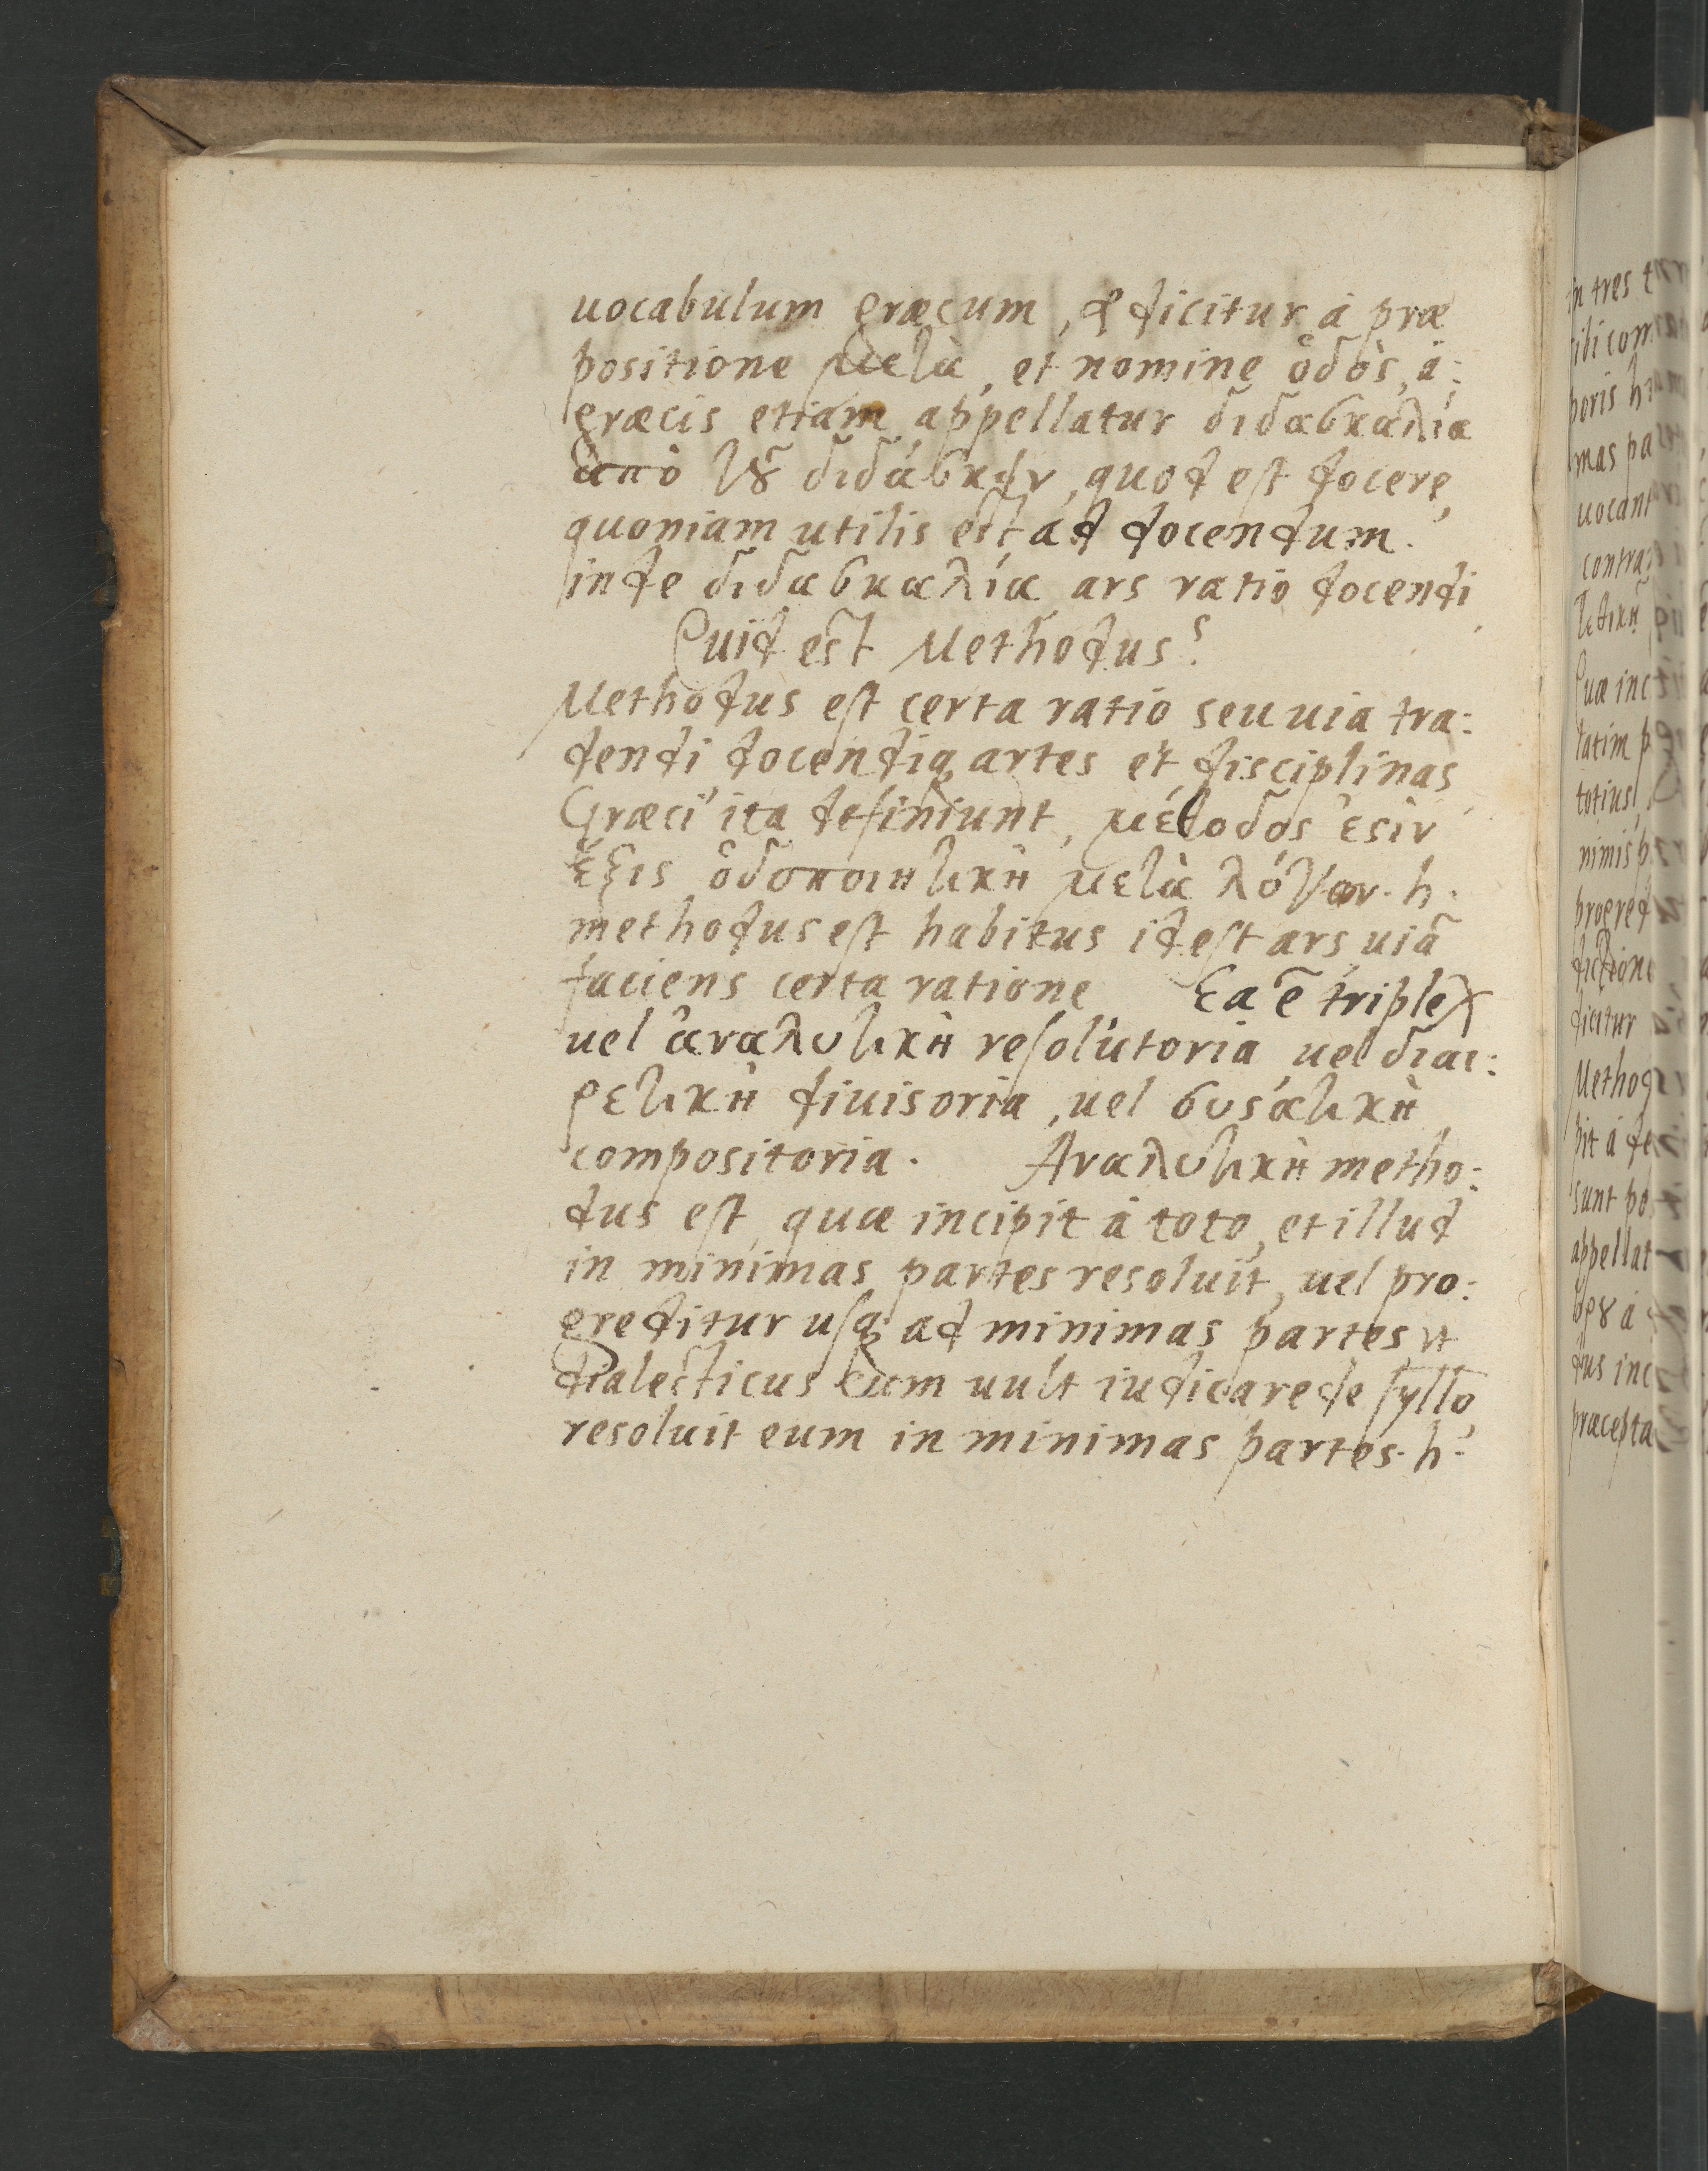 uocabulum græcum, & dicitur à præ
positione μεlὰ, et nomine ὁδὸς, à:
græcis etiam appellatur διδασκαλία
ἀπὸ τ͂ȣ διδάσκειν, quod est docere,
quoniam utilis est ad docendum.
inde διδασκαλία ars ratio docendi
Quid est Methodus?
Methodus est certa ratio seu uia tra:
dendi docendiq; artes et disciplinas
Græci ita definiunt, μέθοδος ἐςὶν
ἕξις ὁδοποιητικὴ μετὰ λόγου. h.
methodus est habitus id est ars uiā
faciens certa ratione Ea ē triplex
uel ἀναλυτικὴ resolutoria uel διαι:
ρετικὴ diuisoria, uel συςάτικὴ
compositoria. Αναλυτικὴ metho:
dus est, quæ incipit à toto, et illud
in minimas partes resoluit, uel pro:
greditur usq; ad minimas partes ut
dialecticus cum uult iudicare de syllo
resoluit eum in minimas partes. h.
in tres
uocant
contra
Quæ inc
tatim p
totius,
nimis p
progred
dictione
dicitur
Metho
pit à de
sunt po
appellat
dus inc
præcepta